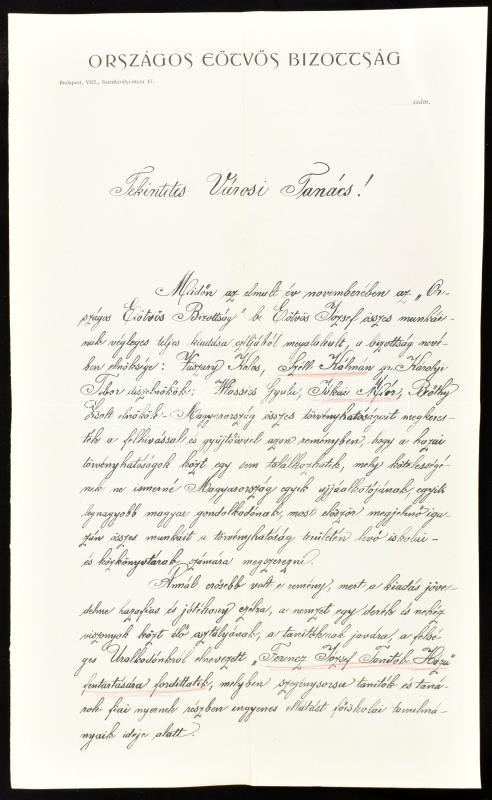 ORSZÁGOS EÖTVÖS BIZOTTSÁG
Budapest, VIII., Szentkirályi-utcza 47.
szám.
Tekintetes Városi Tanács!
Midőn az elmult év novemberében az „Or-
szágos Eötvös Bizottság" b. Eötvös József összes munkái-
nak végleges teljes kiadása czéljából megalakult, a bizottság nevé-
ben elnöksége: Vaszary Kolos, Széll Kálmán gr. Károlyi
Tibor díszelnökök: Wlassics Gyula, Jókai Mór, Beöthy
Zsolt elnökök - Magyarország összes törvényhatóságait megkeres-
ték a felhivással és gyüjtőivvel azon reményben, hogy a hazai
törvényhatóságok közt egy sem találkozhatik, mely kötelességé-
nek ne ismerné Magyarország egyik ujjáalkotójának, egyik
legnagyobb magyar gondolkodónak, most először megjelenő iga-
zán összes munkáit a törvényhatóság területén levő iskolai-
és közkönyvtárak számára megszerezni.
Annál erősebb volt e remény, mert a kiadás jöve-
delme hazafias és jótékony czélra, a nemzet egy derék és nehéz
viszonyok közt élő osztályának, a tanítóknak javára, a felsé-
ges Uralkodónkról elnevezett „Ferencz József Tanítók Háza"
fentartására fordíttatik, melyben szegénysorsu tanítók és taná-
rok fiai nyernek részben ingyenes ellátást főiskolai tanulmá-
nyaik ideje alatt.